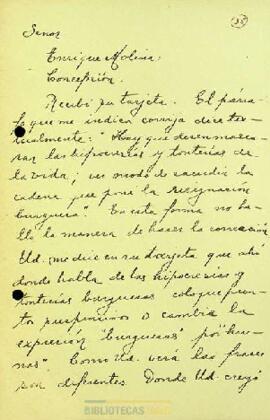 Señor
Enrique Molina,
Concepción.
Recibí su tarjeta. El párra-
fo que me indica corrija dice tex-
tualmente: "Hay que desenmasca-
rar las hipocresías y tonterías de
la vida; un modo de sacudir la
cadena que pone la resignación
burguesa". En esta forma no ha-
llo la manera de hacer la corrección
Ud. me dice en su tarjeta que ahí
donde habla de las hipocresías y
tonterías burguesas coloque pun-
tos suspensivos o cambie la
expresión "burguesas" por "huma-
nas" Como Ud. verá las frases
son diferentes. Donde Ud. creyó
BIBLIOTECAS